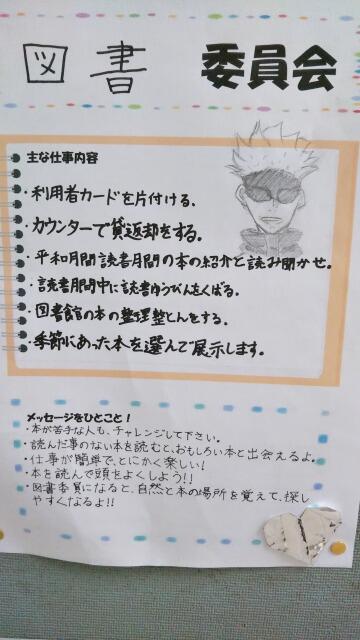 図書 委員会
主な仕事内容
・利用者カードを片付ける.
・カウンターで貸返却をする.
・平和月間読書月間の本の紹介と読み聞かせ.
・読書月間中に読書ゆうびんをくばる.
・図書館の本の整理整とんをする.
・季節にあった本を選んで展示します.
メッセージをひとこと!
・本が苦手な人も、チャレンジして下さい。
・読んだ事のない本を読むと、おもしろい本と出会えるよ。
・仕事が簡単で、とにかく楽しい!
・本を読んで頭をよくしよう!!
・図書委員になると、自然と本の場所を覚えて、探し
やすくなるよ!!